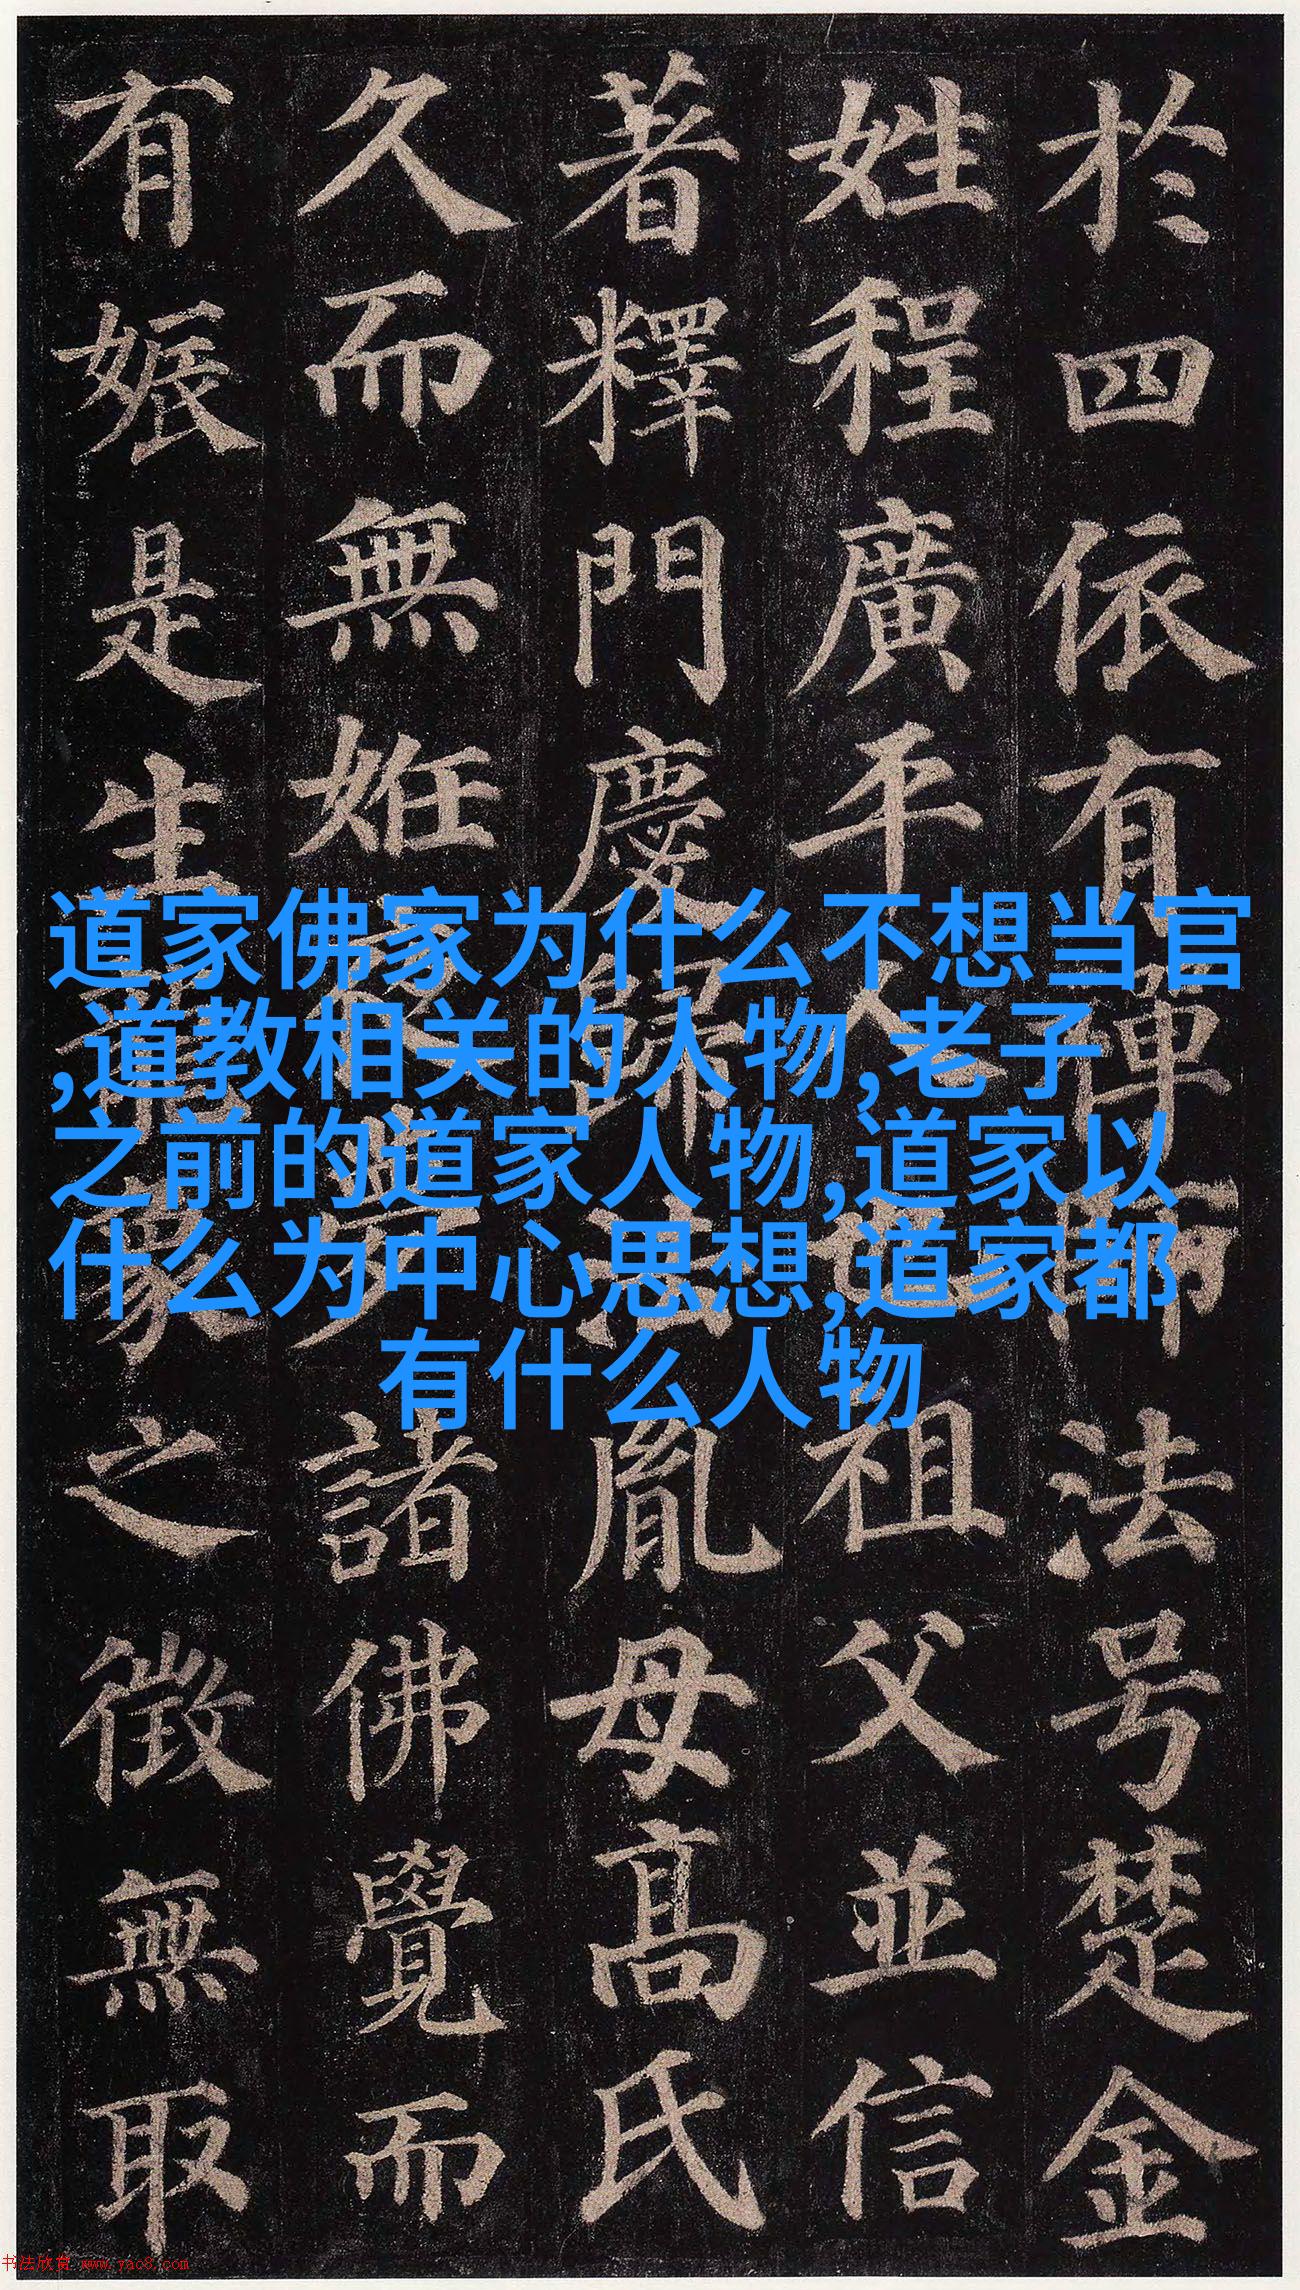 於四依有禪師法号楚金
姓程廣平人也祖父並信
著釋門慶歸法胤母高氏
久而無姙夜夢諸佛覺而
有娠是生龍象之徵無取
道家佛家为什么不想当官
,道教相关的人物,老子
之前的道家人物,道家以
什么为中心思想,道家都
有什么人物
书法欣赏 www.yac8.com